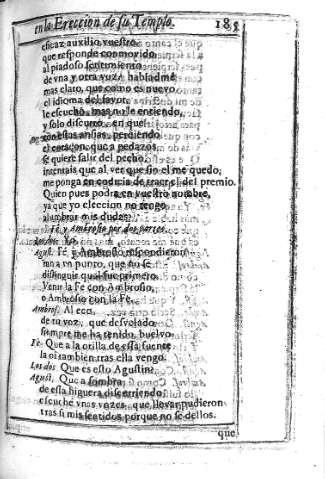 en la Ereccion de su Templo. 185
eficaz auxilio vuestro
que responde conmovido
al piadoso sentimiento
de vna y otra voz? habladme
mas claro, que como es nuevo
el idioma del favor,
le escucho, mas no le entiendo,
y solo discurro, en que
con estas ansias, perdiendo
el coraçon, que a pedazos
se quiere salir del pecho,
intentais que al ver que sin el me quedo,
me ponga en codicia de traer el del premio.
Quien pues podrá en vuestro nombre,
ya que yo eleccion no tengo
alumbrar mis dudas?
Fè y Ambrosio por dos partes.
Los dos Yo.
Agust. Fè y Ambrosio respondieron
tan a vn punto, que no sé
distinguir qual fue primero,
Ambrosio con la Fe.
Ambros. Al eco
de tu voz, que desvelado
siempre me ha tenido, buelvo.
Fè. Que a la orilla de esta fuente
la oí tambien tras ella vengo.
Los dos Que es esto Agustin?
Agust. Que a sombra
de esta higuera discurriendo,
escuchè vnas vozes, que llevar pudieron
tras si mis sentidos porque no se dellos.
que